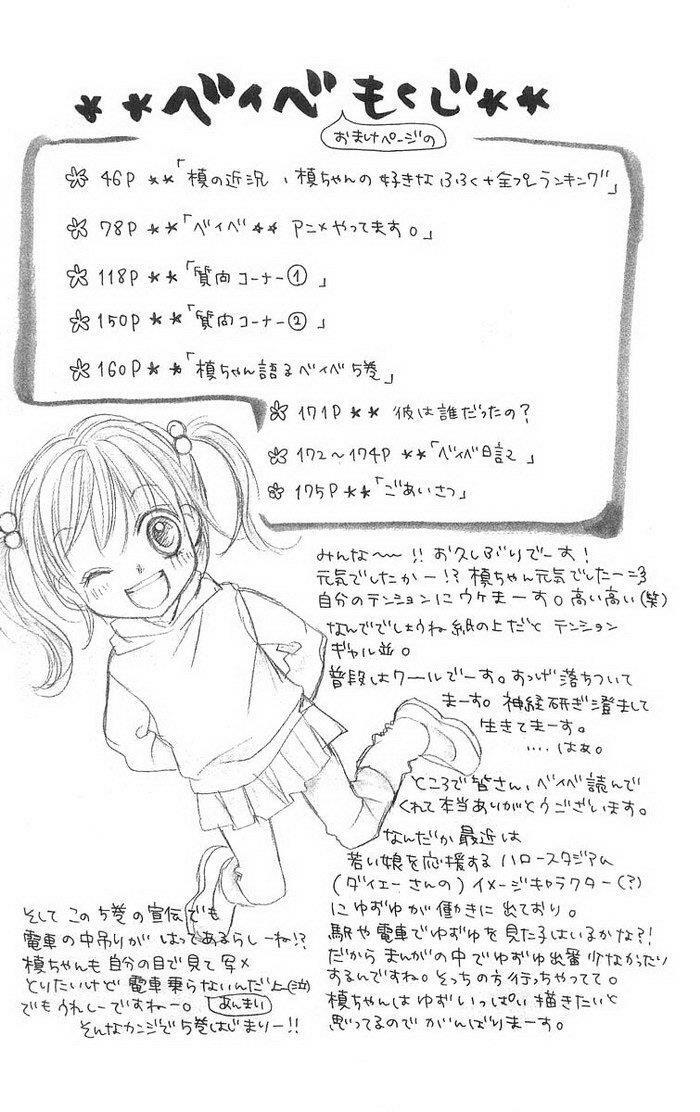 **ベイベもくじ**
おまけページの
46P **「槙の近況、槙ちゃんの好きなふく+全プレランキング」
78P **「ベイベ** アニメやってます。」
118P **「質問コーナー①」
150P **「質問コーナー②」
160P **「槙ちゃん語るベイベ5巻」
171P ** 彼は誰だったの?
172〜174P **「ベイベ日記」
175P **「ごあいさつ」
みんな〜!!お久しぶりでーす!
元気でしたかー!?槙ちゃん元気でしたー
自分のテンションにウケまーす。高い高い(笑)
なんででしょうね紙の上だと テンション
ギャル並。
普段はクールでーす。すっげ落ちついて
まーす。神経研ぎ澄まして
生きてまーす。
‥‥はぁ。
ところで皆さん、ベイベ読んで
くれて本当ありがとうございます。
なんだか最近は
若い娘を応援する ハロースタジアム
(ダイエーさんの)イメージキャラクター(?)
にゆずゆが働きに出ており。
駅や電車でゆずゆを見た子はいるかな?!
だから まんがの中でゆずゆ出番少なかったり
するんですね。そっちの方行っちゃってて。
槙ちゃんは ゆずいっぱい描きたいと
思ってるので がんばりまーす。
そして この5巻の宣伝でも
電車の中吊りが はってあるらしーね!?
槙ちゃんも 自分の目で見て 写メ
とりたいけど 電車乗らないんだ上(泣)
でもうれしーですねー。 あんまい
そんなカンジで5巻はじまりー!!